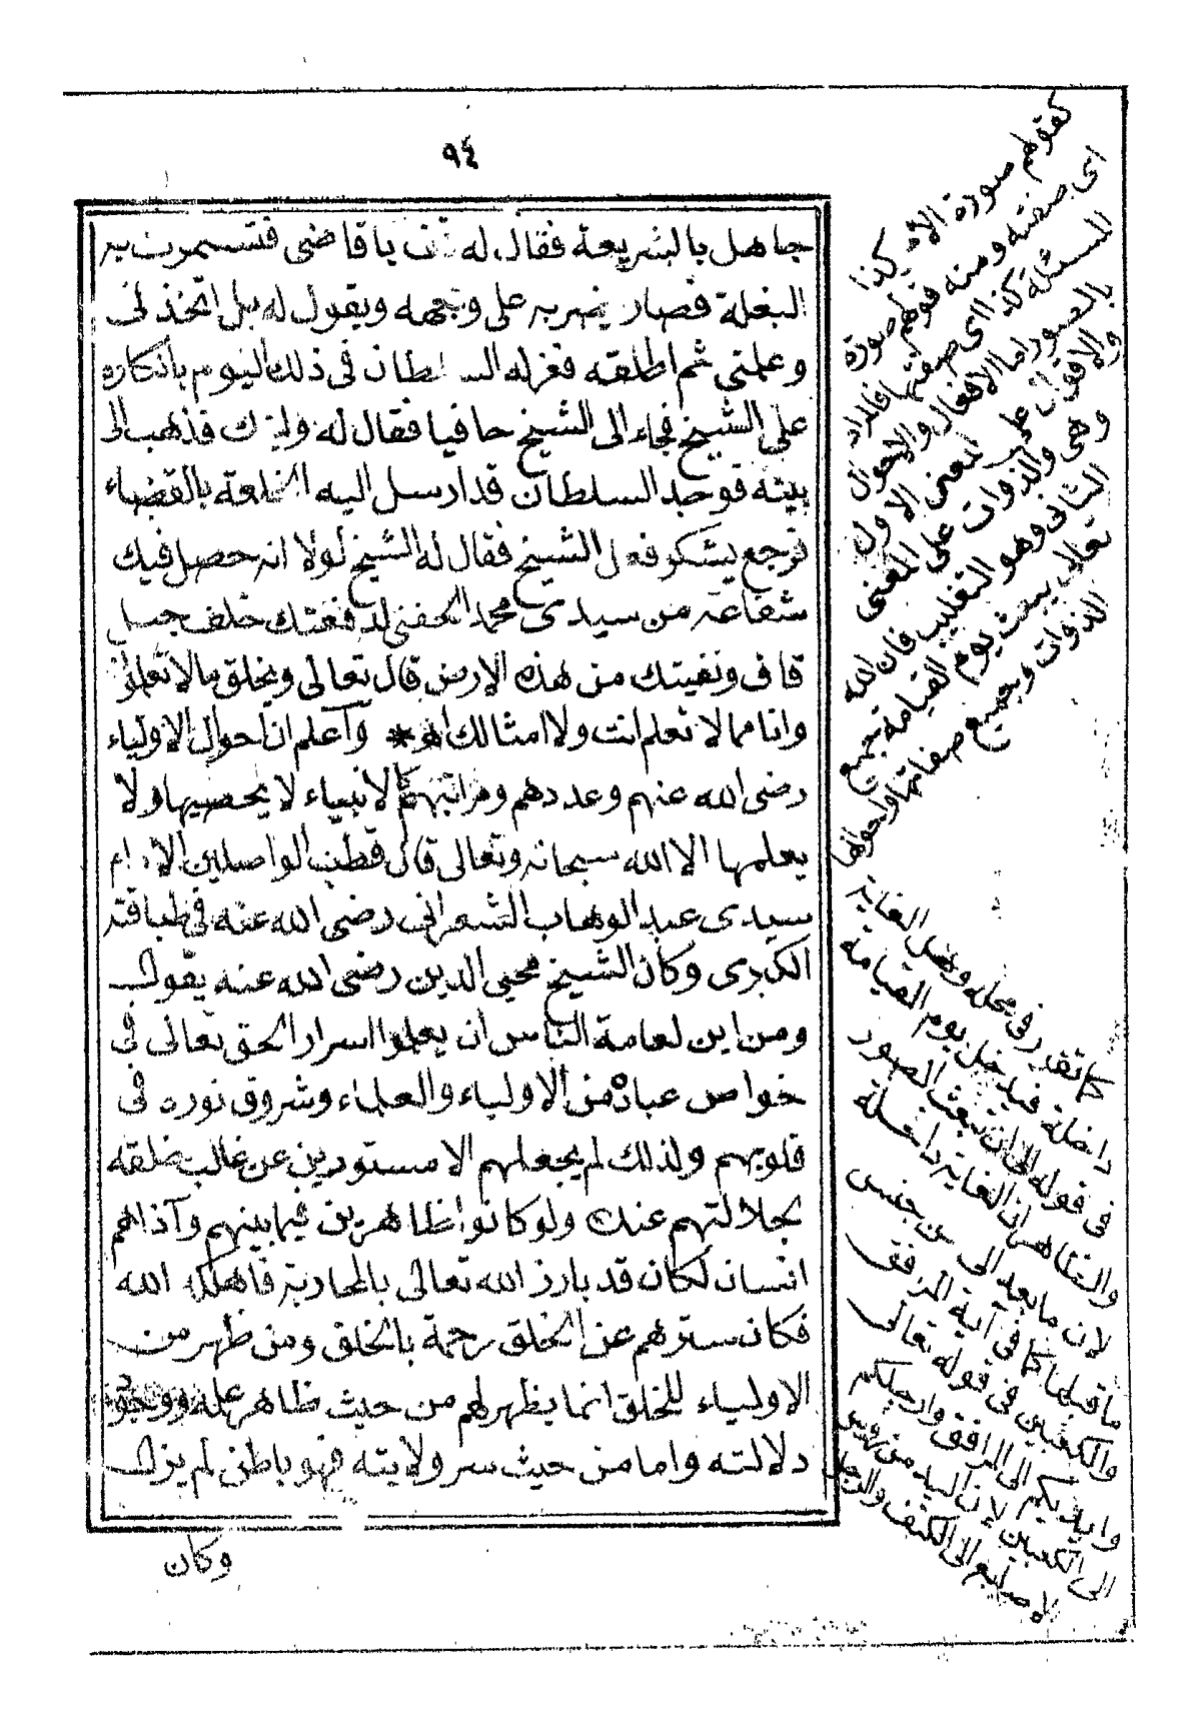 ٩٤
جاهل بالشريعة فقال له قف يا قاضى فتسمرت به
البغلة فصار يضربه على وجهه ويقول له بل اتخذنى
وعلمنى ثم اطلقه فعزله السلطان فى ذلك اليوم بانكاره
على الشيخ فجاء الى الشيخ حافيا فقال له فذهب الى
بيته فوجد السلطان قد ارسل اليه الخلعة بالقضاء
فرجع يشكر فعل الشيخ فقال له الشيخ لولا انه حصل فيك
شفاعة من سيدى محمد الحفنى لدفعتك خلف جبل
قاف ونفيتك من هذه الارض قال تعالى ويخلق ما لا تعلمون
وانا مما لا تعلم انت ولا امثالك اهـ * واعلم ان احوال الاولياء
رضى الله عنهم وعددهم ومراتبهم كالانبياء لا يحصيها ولا
يعلمها الا الله سبحانه وتعالى قال قطب الواصلين الامام
سيدى عبد الوهاب الشعرانى رضى الله عنه فى طبقاته
الكبرى وكان الشيخ محيى الدين رضى الله عنه يقول
ومن اين لعامة الناس ان يعلموا اسرار الحق تعالى فى
خواص عباده من الاولياء والعلماء وشروق نوره فى
قلوبهم ولذلك لم يجعلهم الا مستورين عن غالب خلقه
لجلالتهم عنده ولو كانوا ظاهرين فيما بينهم وآذاهم
انسان لكان قد بارز الله تعالى بالمحاربة فاهلكه الله
فكان سترهم عن الخلق رحمة بالخلق ومن ظهر من
الاولياء للخلق انما يظهر لهم من حيث ظاهر علمه ووجود
دلالته واما من حيث سر ولايته فهو باطن لم يزل
وكان
كقولهم صورة الامر كذا
اى صفته ومنه قولهم صورة
المسئلة كذا اى صفتها فالمراد
بالصور اما الافعال والاحوال
والاقوال على المعنى الاول
وهى والذوات على المعنى
الثانى وهو التغليب فان الله
تعالى يبعث يوم القيامة جميع
الذوات وجميع صفاتها واحوالها
كما تقدر فى محله وهل الغاية
داخلة فيدخل يوم القيامة
فى قوله الى ان تبعث الصور
والظاهر ان الغاية داخلة
لان ما بعد الى من جنس
ما قبلها كما فى آية المرفق
والكعبين فى قوله تعالى
وايديكم الى المرافق وارجلكم
الى الكعبين لان اليد من رؤس
الاصابع الى الكتف والرجل